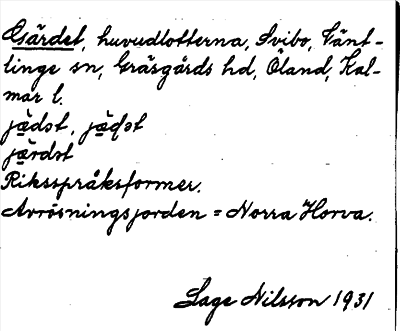 Gsärdet, huvudlotterna, Svibo, Vänt-
linge sn, Gräsgårds hd, Öland, Kal-
mar l.
jä̀dət, jä̀dət
jä̀rdət
Riksspråksformer.
Avrösningsjorden = Norra Horva.
Sage Nilsson 1931